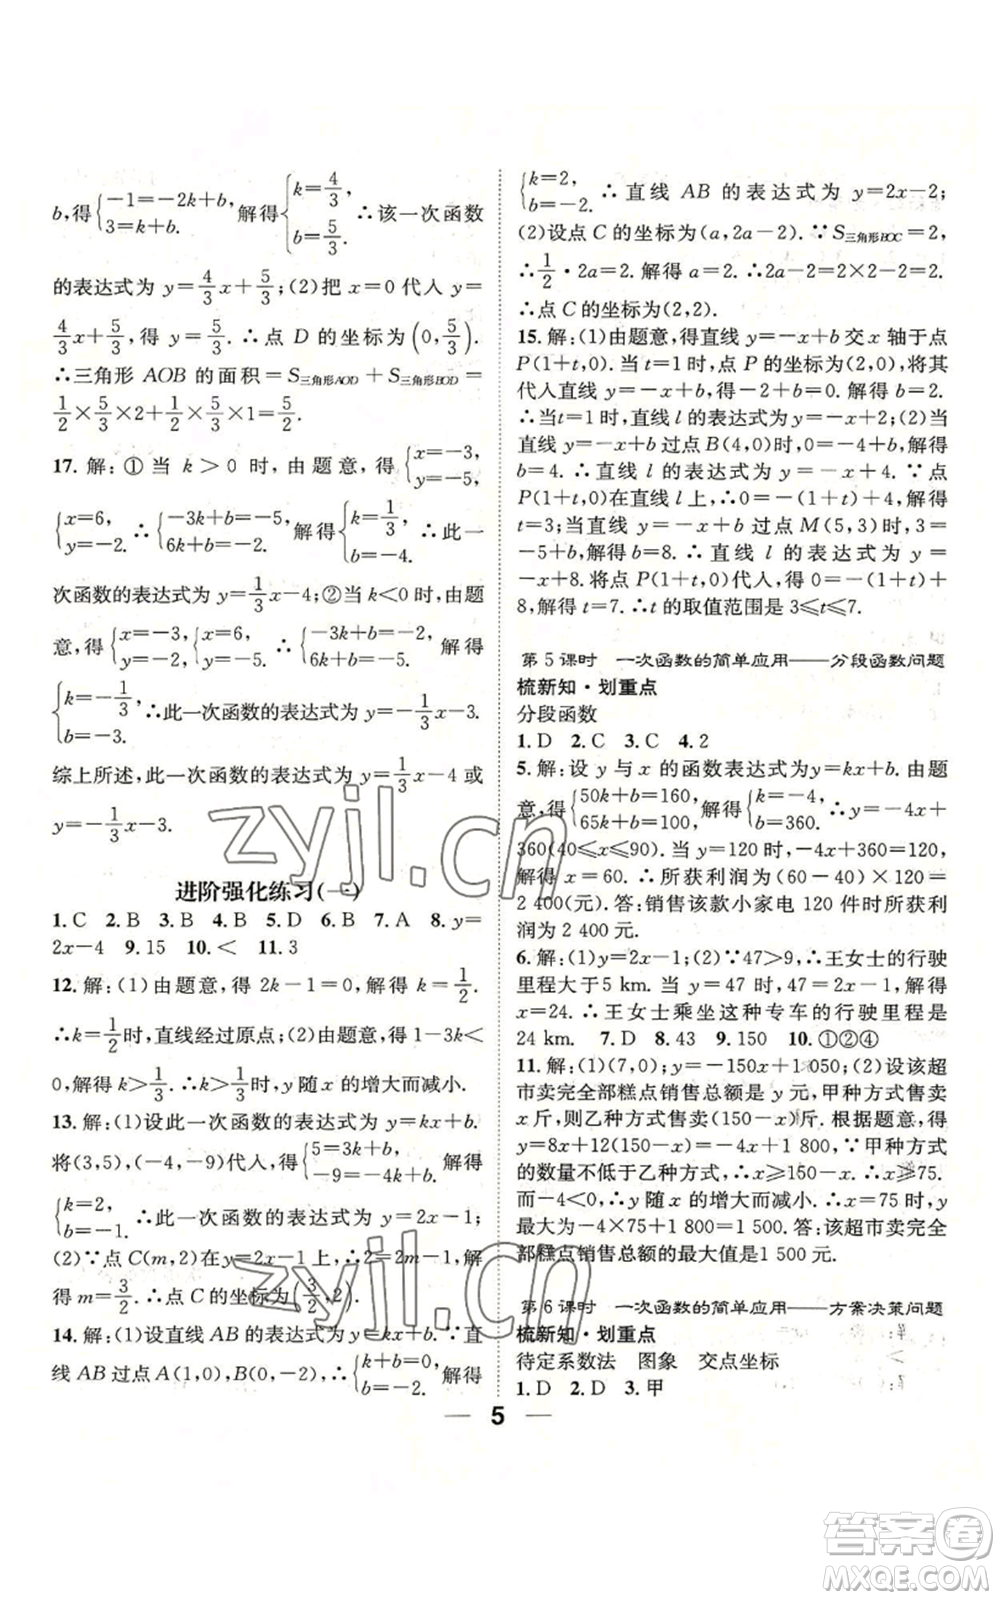 b,得{-1=-2k+b, 3=k+b. 解得{k=4/3, b=5/3. ∴该一次函数
的表达式为 y=4/3x+5/3;(2)把 x=0 代入 y=
4/3x+5/3,得 y=5/3. ∴点 D 的坐标为(0,5/3).
∴三角形 AOB 的面积=S三角形AOD+S三角形BOD=
1/2×5/3×2+1/2×5/3×1=5/2.
17. 解:①当 k>0 时,由题意,得{x=-3, y=-5,
{x=6, y=-2. ∴{-3k+b=-5, 6k+b=-2. 解得{k=1/3, b=-4. ∴此一
次函数的表达式为 y=1/3x-4;②当 k<0 时,由题
意,得{x=-3, y=-2, {x=6, y=-5. ∴{-3k+b=-2, 6k+b=-5. 解得
{k=-1/3, b=-3. ∴此一次函数的表达式为 y=-1/3x-3.
综上所述,此一次函数的表达式为 y=1/3x-4 或
y=-1/3x-3.
进阶强化练习(一)
1. C 2. B 3. B 4. B 5. D 6. B 7. A 8. y=
2x-4 9. 15 10. < 11. 3
12. 解:(1)由题意,得 2k-1=0,解得 k=1/2.
∴k=1/2时,直线经过原点;(2)由题意,得 1-3k<
0,解得 k>1/3. ∴k>1/3时,y 随 x 的增大而减小.
13. 解:(1)设此一次函数的表达式为 y=kx+b.
将(3,5),(-4,-9)代入,得{5=3k+b, -9=-4k+b. 解得
{k=2, b=-1. ∴此一次函数的表达式为 y=2x-1;
(2)∵点 C(m,2)在 y=2x-1 上,∴2=2m-1,解
得 m=3/2. ∴点 C 的坐标为(3/2,2).
14. 解:(1)设直线 AB 的表达式为 y=kx+b. ∵直
线 AB 过点 A(1,0),B(0,-2),∴{k+b=0, b=-2. 解得
{k=2, b=-2. ∴直线 AB 的表达式为 y=2x-2;
(2)设点 C 的坐标为(a,2a-2). ∵S三角形BOC=2,
∴1/2·2a=2. 解得 a=2. ∴2a-2=2×2-2=2.
∴点 C 的坐标为(2,2).
15. 解:(1)由题意,得直线 y=-x+b 交 x 轴于点
P(1+t,0). 当 t=1 时,点 P 的坐标为(2,0),将其
代入直线 y=-x+b,得-2+b=0. 解得 b=2.
∴当t=1 时,直线 l 的表达式为 y=-x+2;(2)当
直线 y=-x+b 过点 B(4,0)时,0=-4+b,解得
b=4. ∴直线 l 的表达式为 y=-x+4. ∵点
P(1+t,0)在直线 l 上,∴0=-(1+t)+4,解得
t=3;当直线 y=-x+b 过点 M(5,3)时,3=
-5+b,解得 b=8. ∴直线 l 的表达式为 y=
-x+8. 将点 P(1+t,0)代入,得 0=-(1+t)+
8,解得 t=7. ∴t 的取值范围是 3≤t≤7.
第 5 课时 一次函数的简单应用——分段函数问题
梳新知·划重点
分段函数
1. D 2. C 3. C 4. 2
5. 解:设 y 与 x 的函数表达式为y=kx+b. 由题
意,得{50k+b=160, 65k+b=100. 解得{k=-4, b=360. ∴y=-4x+
360(40≤x≤90). 当 y=120 时,-4x+360=120,
解得 x=60. ∴所获利润为(60-40)×120=
2 400(元). 答:销售该款小家电 120 件时所获利
润为 2 400 元.
6. 解:(1)y=2x-1;(2)∵47>9,∴王女士的行驶
里程大于5 km. 当 y=47 时,47=2x-1,解得
x=24. ∴王女士乘坐这种专车的行驶里程是
24 km. 7. D 8. 43 9. 150 10. ①②④
11. 解:(1)(7,0);y=-150x+1 050;(2)设该超
市卖完全部糕点销售总额是 y 元,甲种方式售卖
x 斤,则乙种方式售卖(150-x)斤. 根据题意,得
y=8x+12(150-x)=-4x+1 800,∵甲种方式
的数量不低于乙种方式,∴x≥150-x. ∴x≥75.
而-4<0,∴y 随 x 的增大而减小. ∴x=75 时,y
最大为-4×75+1 800=1 500. 答:该超市卖完全
部糕点销售总额的最大值是1 500 元.
第 6 课时 一次函数的简单应用——方案决策问题
梳新知·划重点
待定系数法 图象 交点坐标
1. D 2. D 3. 甲
5
zyjl.cn
zyjl.cn
答案圈
MXQE.COM